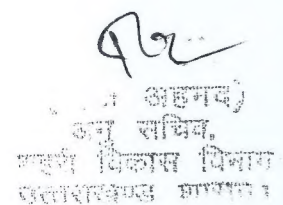 अहमद)
अनु सचिव,
शहरी विकास विभाग
उत्तराखण्ड शासन।